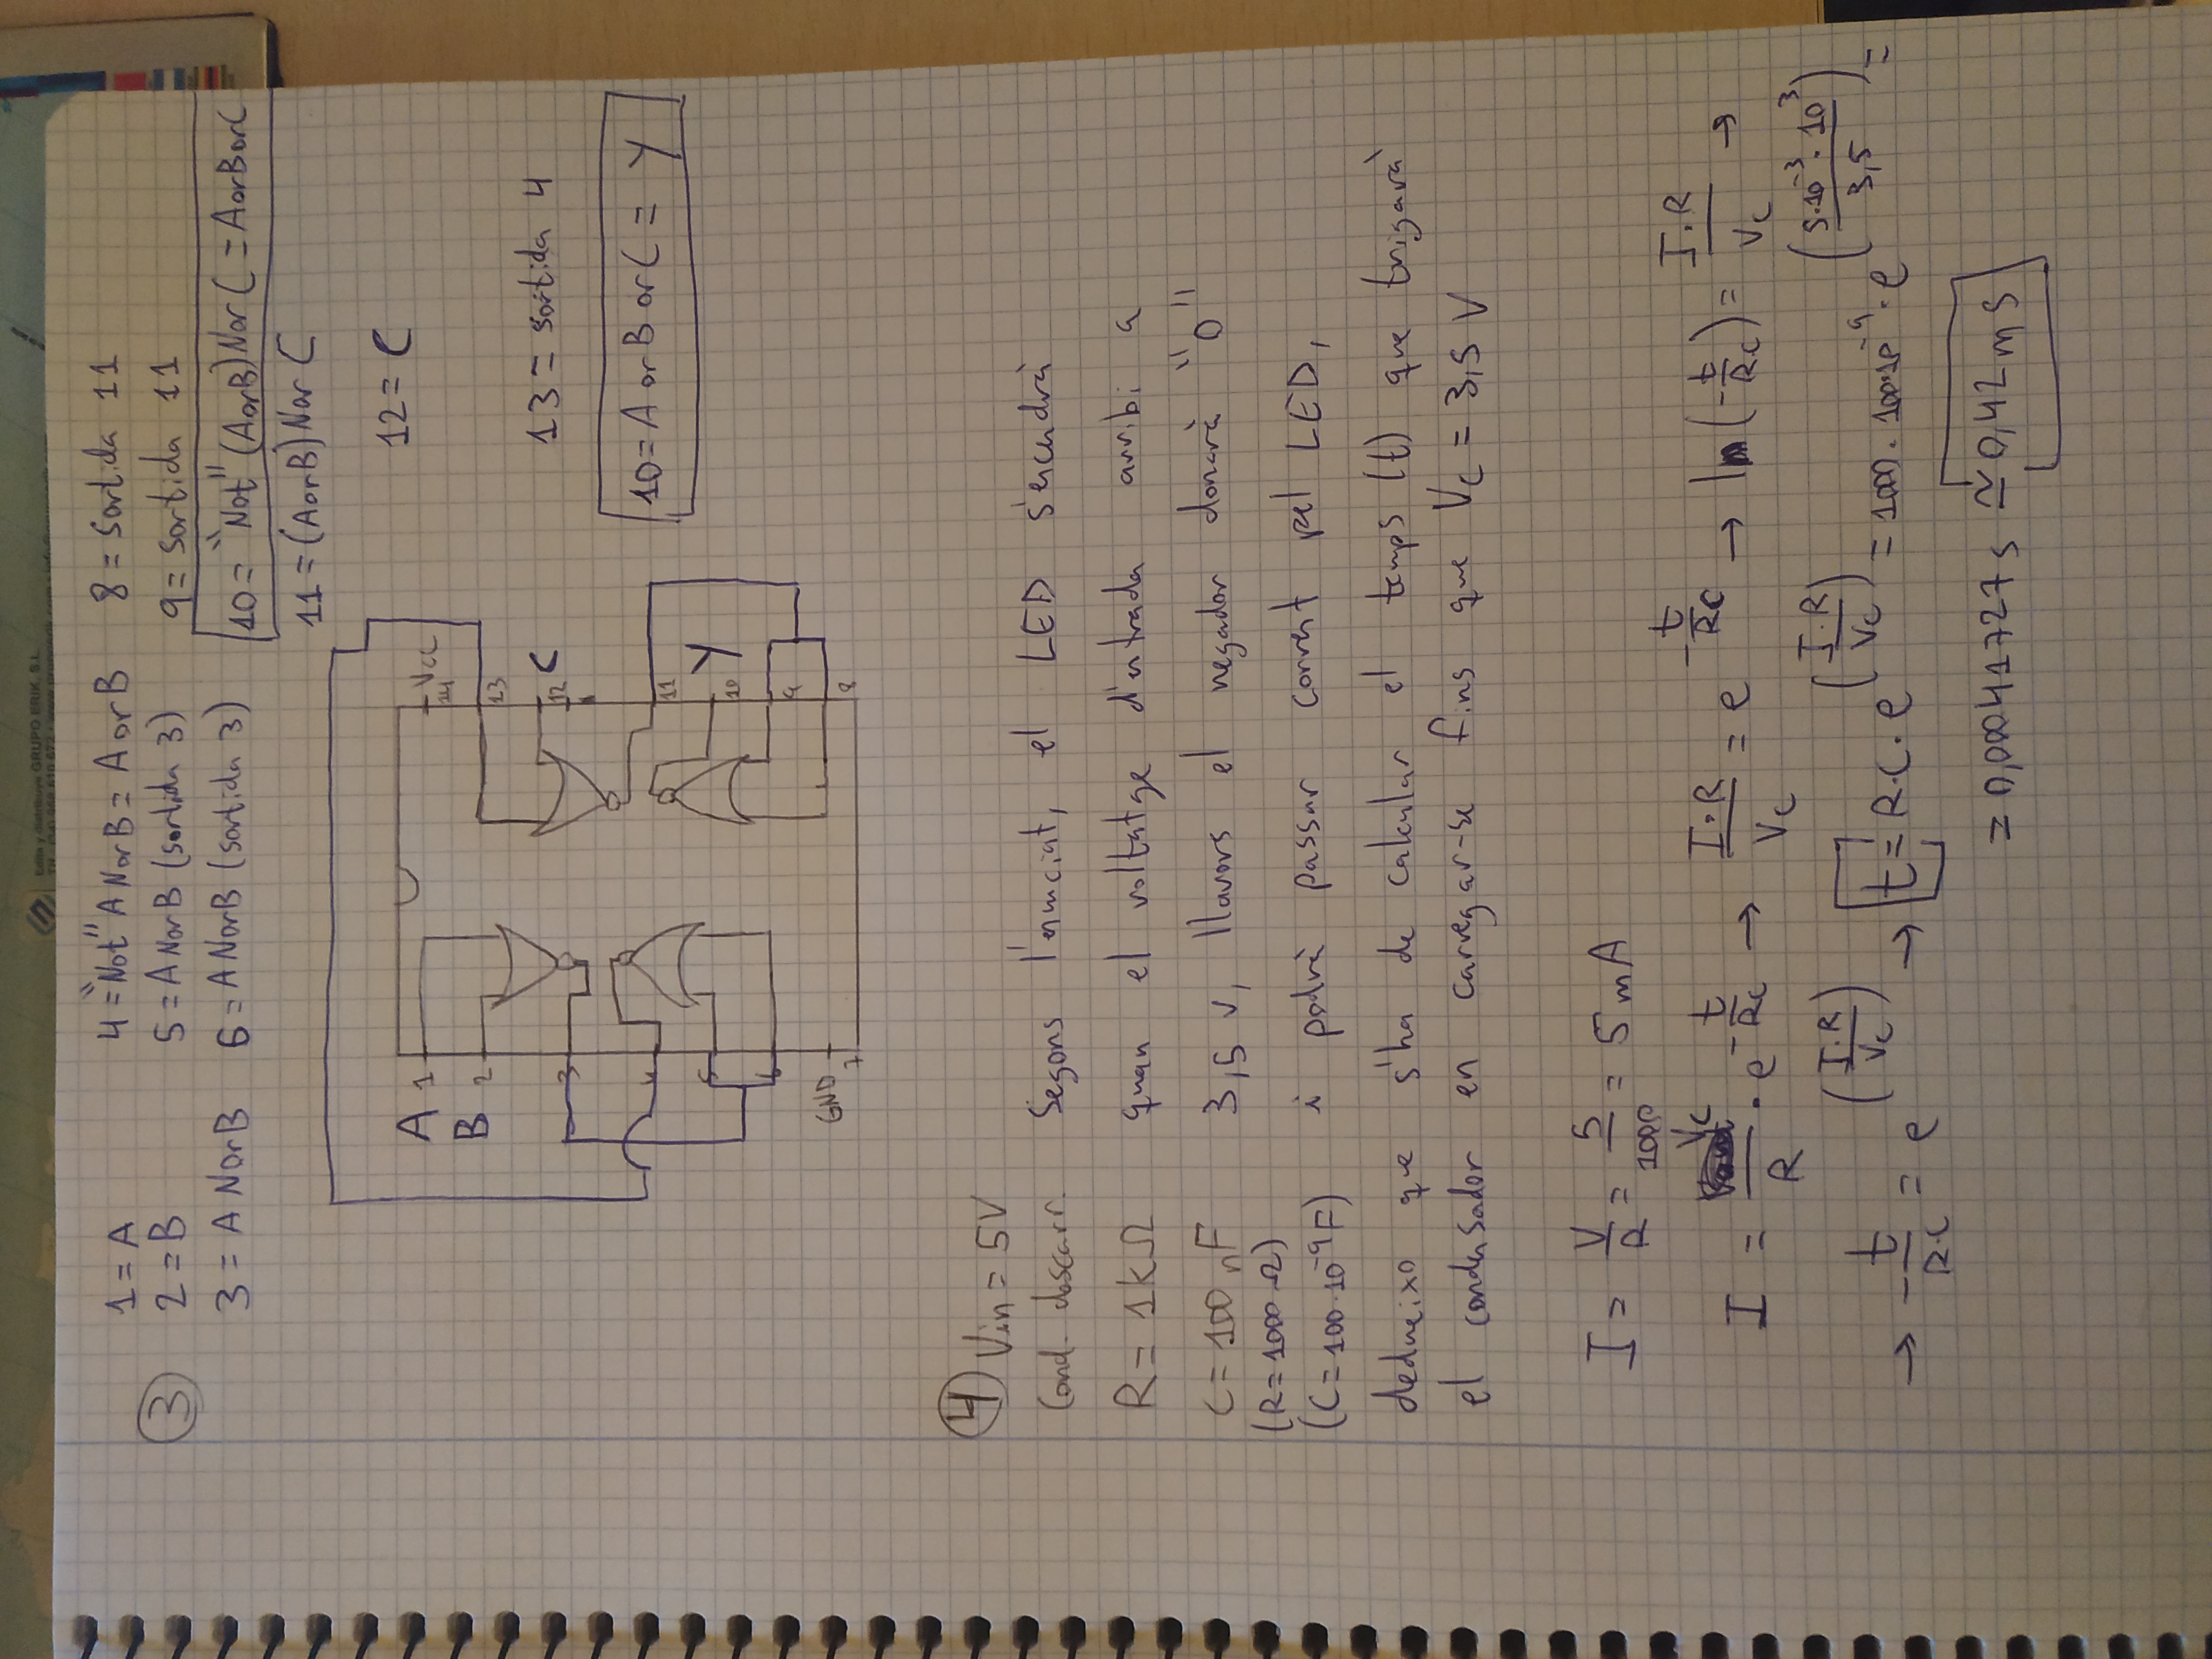 Edita y distribuye GRUPO ERIK, S.L.
3
1 = A
2 = B
3 = A NorB
4 = "Not" A NorB = A or B
5 = A NorB (sortida 3)
6 = A NorB (sortida 3)
8 = sortida 11
9 = sortida 11
10 = "Not" (AorB) Nor C = AorBorC
11 = (AorB) Nor C
12 = C
13 = sortida 4
10 = A or B or C = Y
A 1
B 2
3
4
5
6
GND
7
Vcc
14
13
12 C
11
Y
10
9
8
4
Vin = 5V
Cond. descarr.
R = 1kΩ
C = 100 nF
(R = 1000 Ω)
(C = 100·10⁻⁹F)
Segons l'enunciat, el LED s'encendrà
quan el voltatge d'entrada arribi a
3,5 V, llavors el negador donarà "0"
i podrà passar corrent pel LED,
dedueixo que s'ha de calcular el temps (t) que trigarà
el condensador en carregar-se fins que Vc = 3,5 V
I = V/R = 5/1000 = 5 mA
I = Vc/R · e^(-t/RC) → I·R/Vc = e^(-t/RC) → ln(-t/RC) = I·R/Vc →
→ -t/R·C = e^(I·R/Vc) → t = R·C·e^(I·R/Vc) = 1000·100·10⁻⁹·e^(5·10⁻³·10³/3,5) =
= 0,00041727 s ≃ 0,42 ms